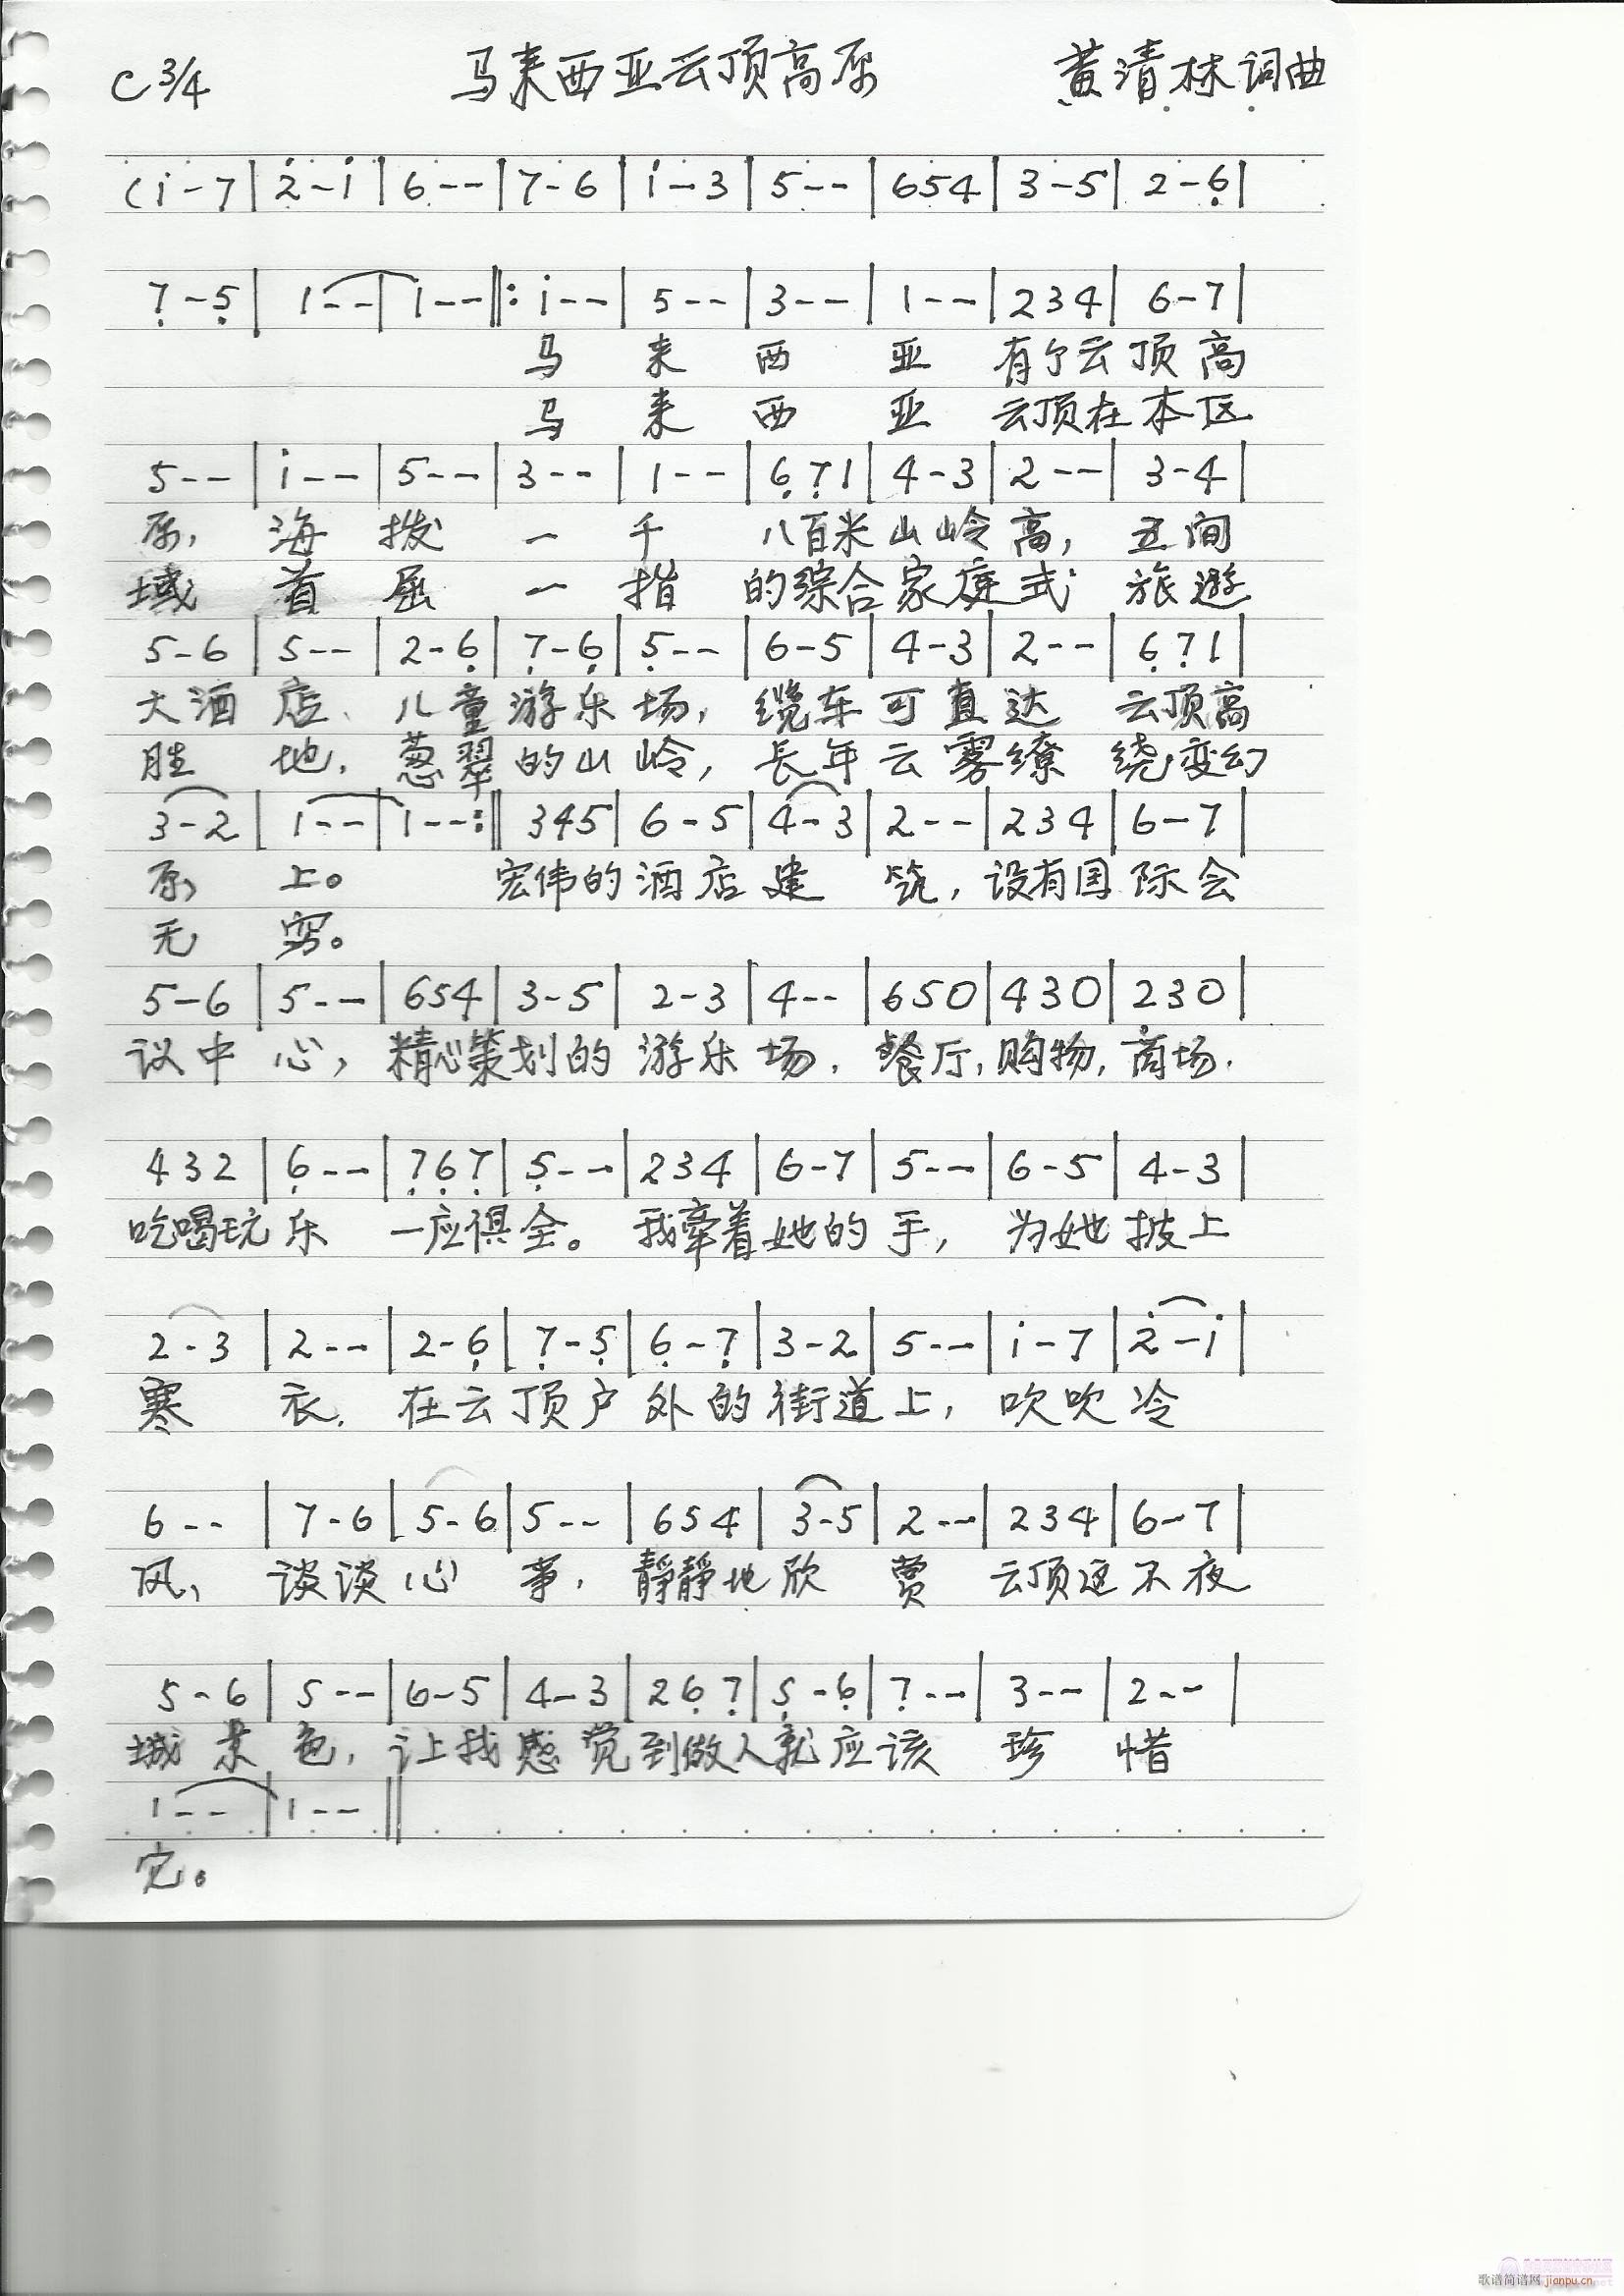 C 3/4 马来西亚云顶高原 黄清林词曲
(i - 7 | 2̇ - i | 6 - - | 7 - 6 | i - 3 | 5 - - | 6 5 4 | 3 - 5 | 2 - 6̣ |
7̣ - 5̣ | 1 - - | 1 - - ‖: i - - | 5 - - | 3 - - | 1 - - | 2 3 4 | 6 - 7 |
马 来 西 亚 有个云顶高
马 来 西 亚 云顶在本区
5 - - | i - - | 5 - - | 3 - - | 1 - - | 6̣ 7̣ 1 | 4 - 3 | 2 - - | 3 - 4 |
原, 海 拨 一 千 八百米山岭高, 五间
域 首 屈 一 指 的综合家庭式 旅遊
5 - 6 | 5 - - | 2 - 6̣ | 7̣ - 6̣ | 5̣ - - | 6 - 5 | 4 - 3 | 2 - - | 6̣ 7̣ 1 |
大酒店、儿童游乐场, 缆车可直达 云顶高
胜 地, 葱翠的山岭, 长年云雾缭 绕变幻
3 - 2 | 1 - - | 1 - - :‖ 3 4 5 | 6 - 5 | 4 - 3 | 2 - - | 2 3 4 | 6 - 7 |
原, 上。 宏伟的酒店建 筑, 设有国际会
无 穷。
5 - 6 | 5 - - | 6 5 4 | 3 - 5 | 2 - 3 | 4 - - | 6 5 0 | 4 3 0 | 2 3 0 |
议中心, 精心策划的游乐场, 餐厅, 购物, 商场,
4 3 2 | 6̣ - - | 7̣ 6̣ 7̣ | 5̣ - - | 2 3 4 | 6 - 7 | 5 - - | 6 - 5 | 4 - 3 |
吃喝玩乐 一应俱全。我牵着她的手, 为她披上
2 - 3 | 2 - - | 2 - 6̣ | 7̣ - 5̣ | 6̣ - 7̣ | 3 - 2 | 5 - - | i - 7 | 2̇ - i |
寒 衣, 在云顶户外的街道上, 吹吹冷
6 - - | 7 - 6 | 5 - 6 | 5 - - | 6 5 4 | 3 - 5 | 2 - - | 2 3 4 | 6 - 7 |
风, 谈谈心 事, 静静地欣 赏 云顶这不夜
5 - 6 | 5 - - | 6 - 5 | 4 - 3 | 2 6̣ 7̣ | 5̣ - 6̣ | 7̣ - - | 3 - - | 2 - - |
城景色, 让我感觉到做人就应该 珍 惜
1 - - | 1 - - ‖
它。
歌谱简谱网 jianpu.cn